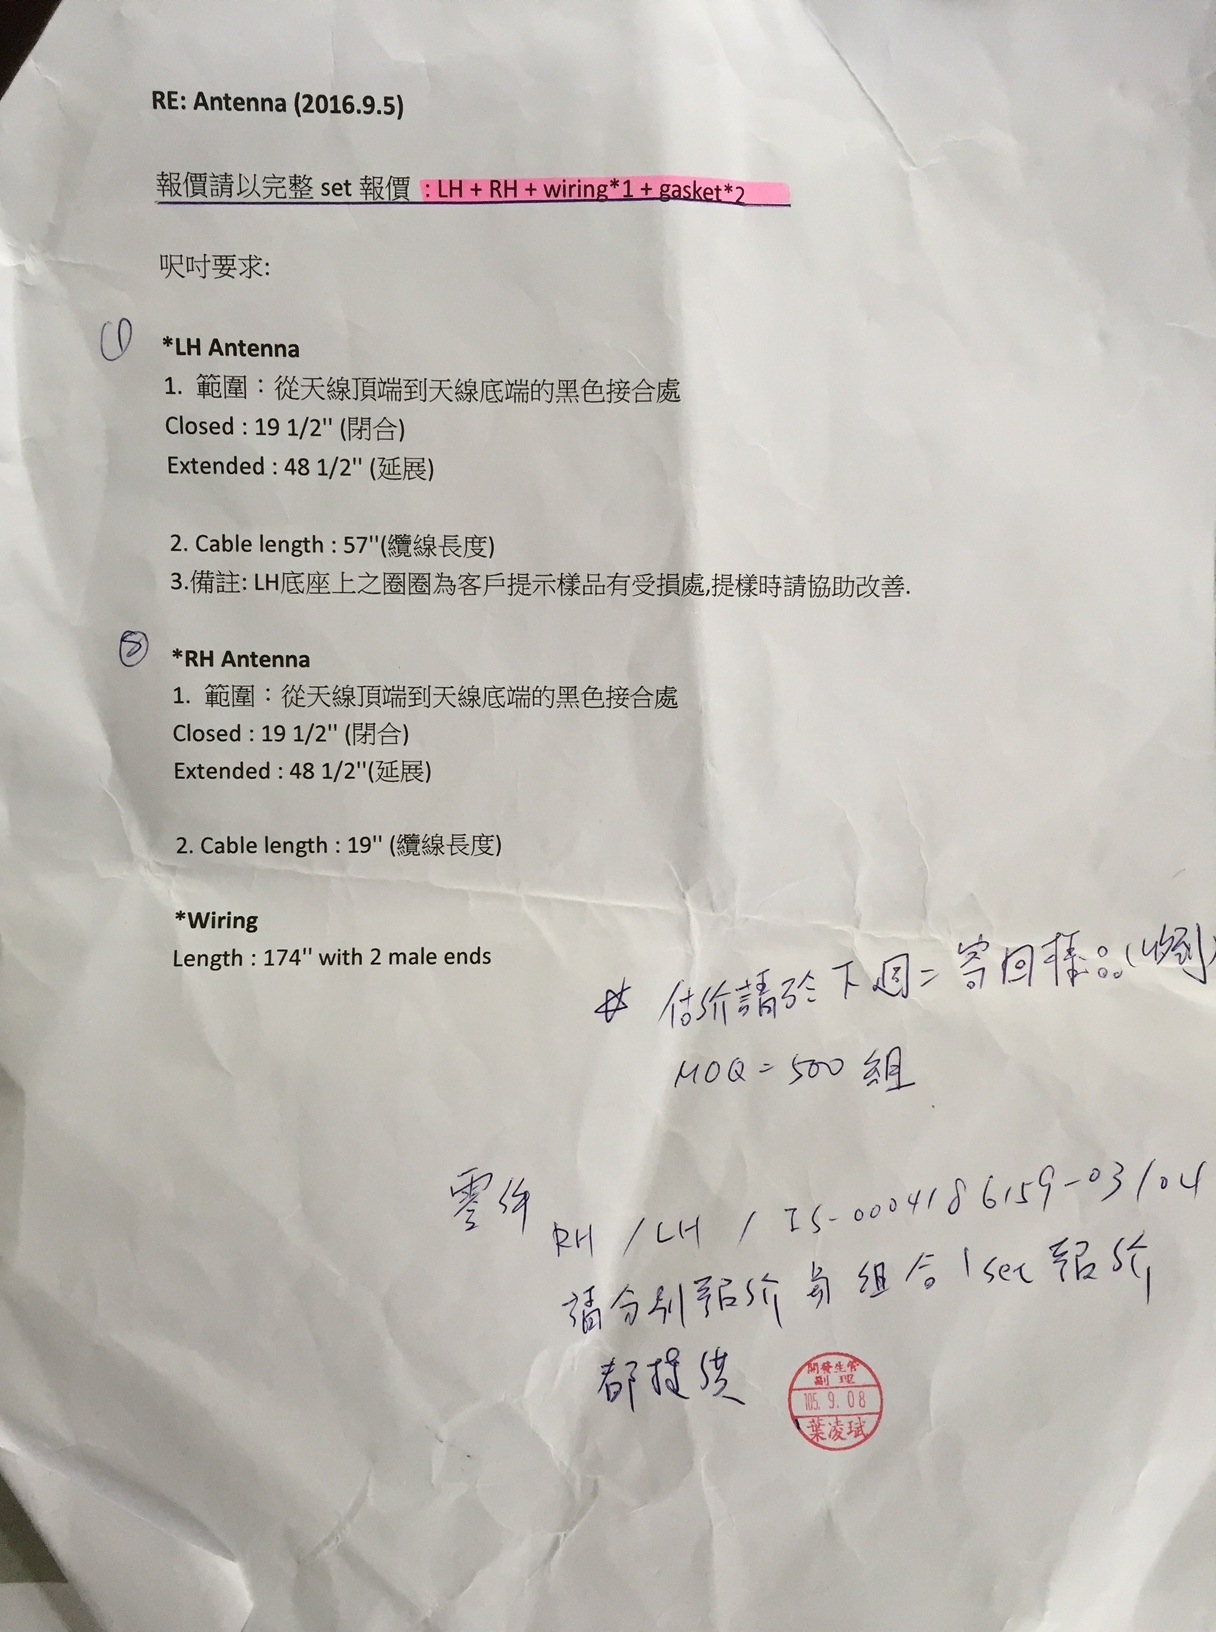 RE: Antenna (2016.9.5)
報價請以完整 set 報價 : LH + RH + wiring*1 + gasket*2
呎吋要求:
① *LH Antenna
1. 範圍：從天線頂端到天線底端的黑色接合處
Closed : 19 1/2'' (閉合)
Extended : 48 1/2'' (延展)
2. Cable length : 57''(纜線長度)
3.備註: LH底座上之圈圈為客戶提示樣品有受損處,提樣時請協助改善.
② *RH Antenna
1. 範圍：從天線頂端到天線底端的黑色接合處
Closed : 19 1/2'' (閉合)
Extended : 48 1/2''(延展)
2. Cable length : 19'' (纜線長度)
*Wiring
Length : 174'' with 2 male ends
估价請於下週二寄回樣品(收到)
MOQ = 500 組
RH / LH / IS-0004186159-03/04
請分別報价 與 組合 1 set 報价
都提供
開發生管
副理
105. 9. 08
葉凌斌